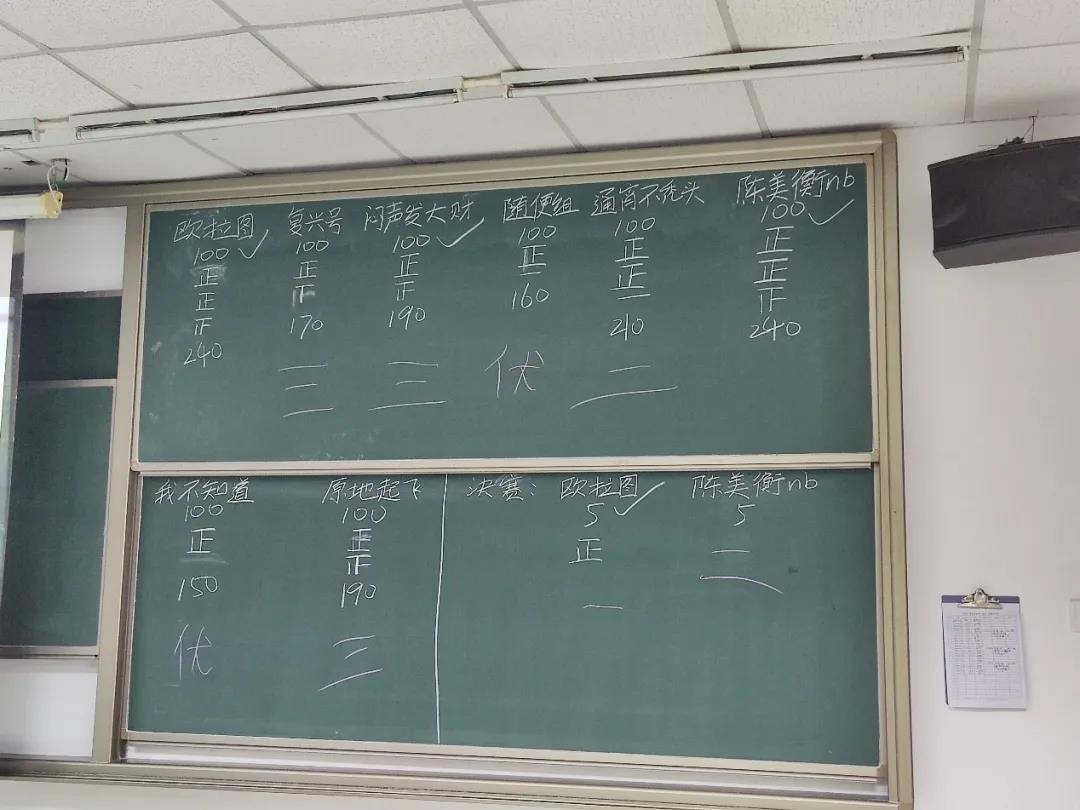 欧拉图
100
正
正
正
240
复兴号
100
正
170
三
闷声发大财
100
正
190
三
随便组
100
正
160
伏
通宵不秃头
100
正
正
一
210
二
陈美衡nb
100
正
正
240
我不知道
100
正
150
伏
原地起飞
100
正
190
三
决赛:
欧拉图
5
正
一
陈美衡nb
5
二